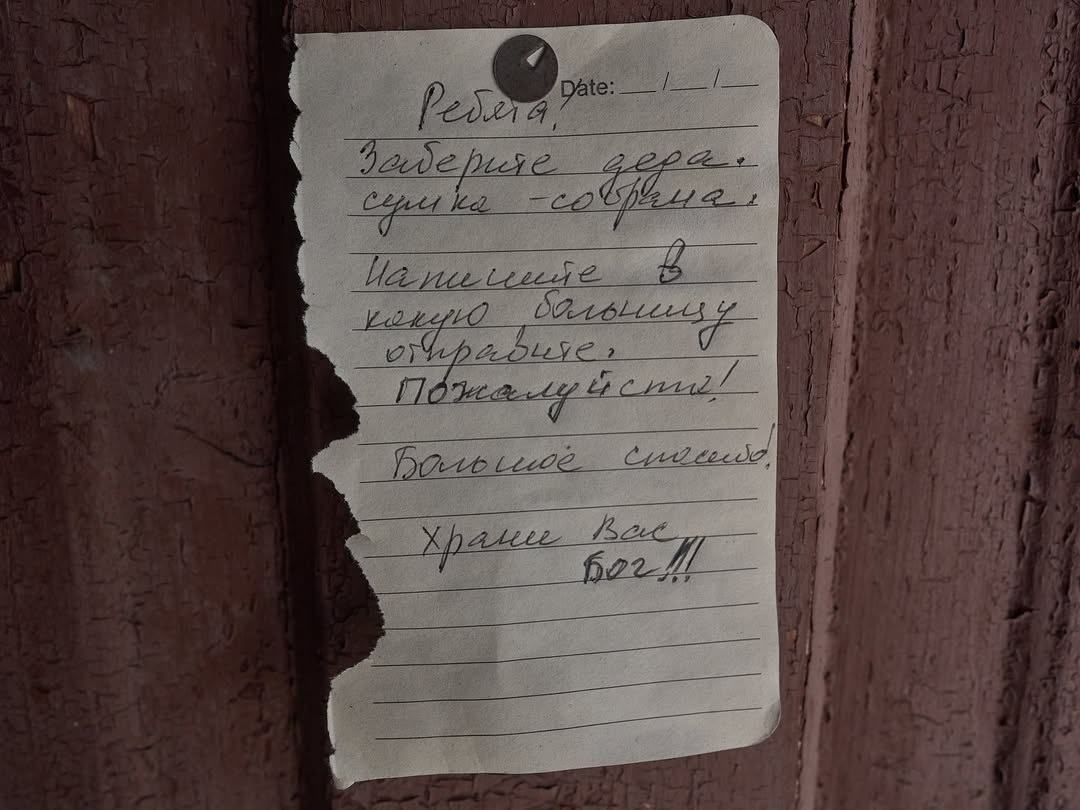 Date: __/__/__
Ребята!
Заберите деда.
сумка - собрана.
Напишите в
какую больницу
отправите.
Пожалуйста!
Большое спасибо!
Храни Вас
Бог!!!